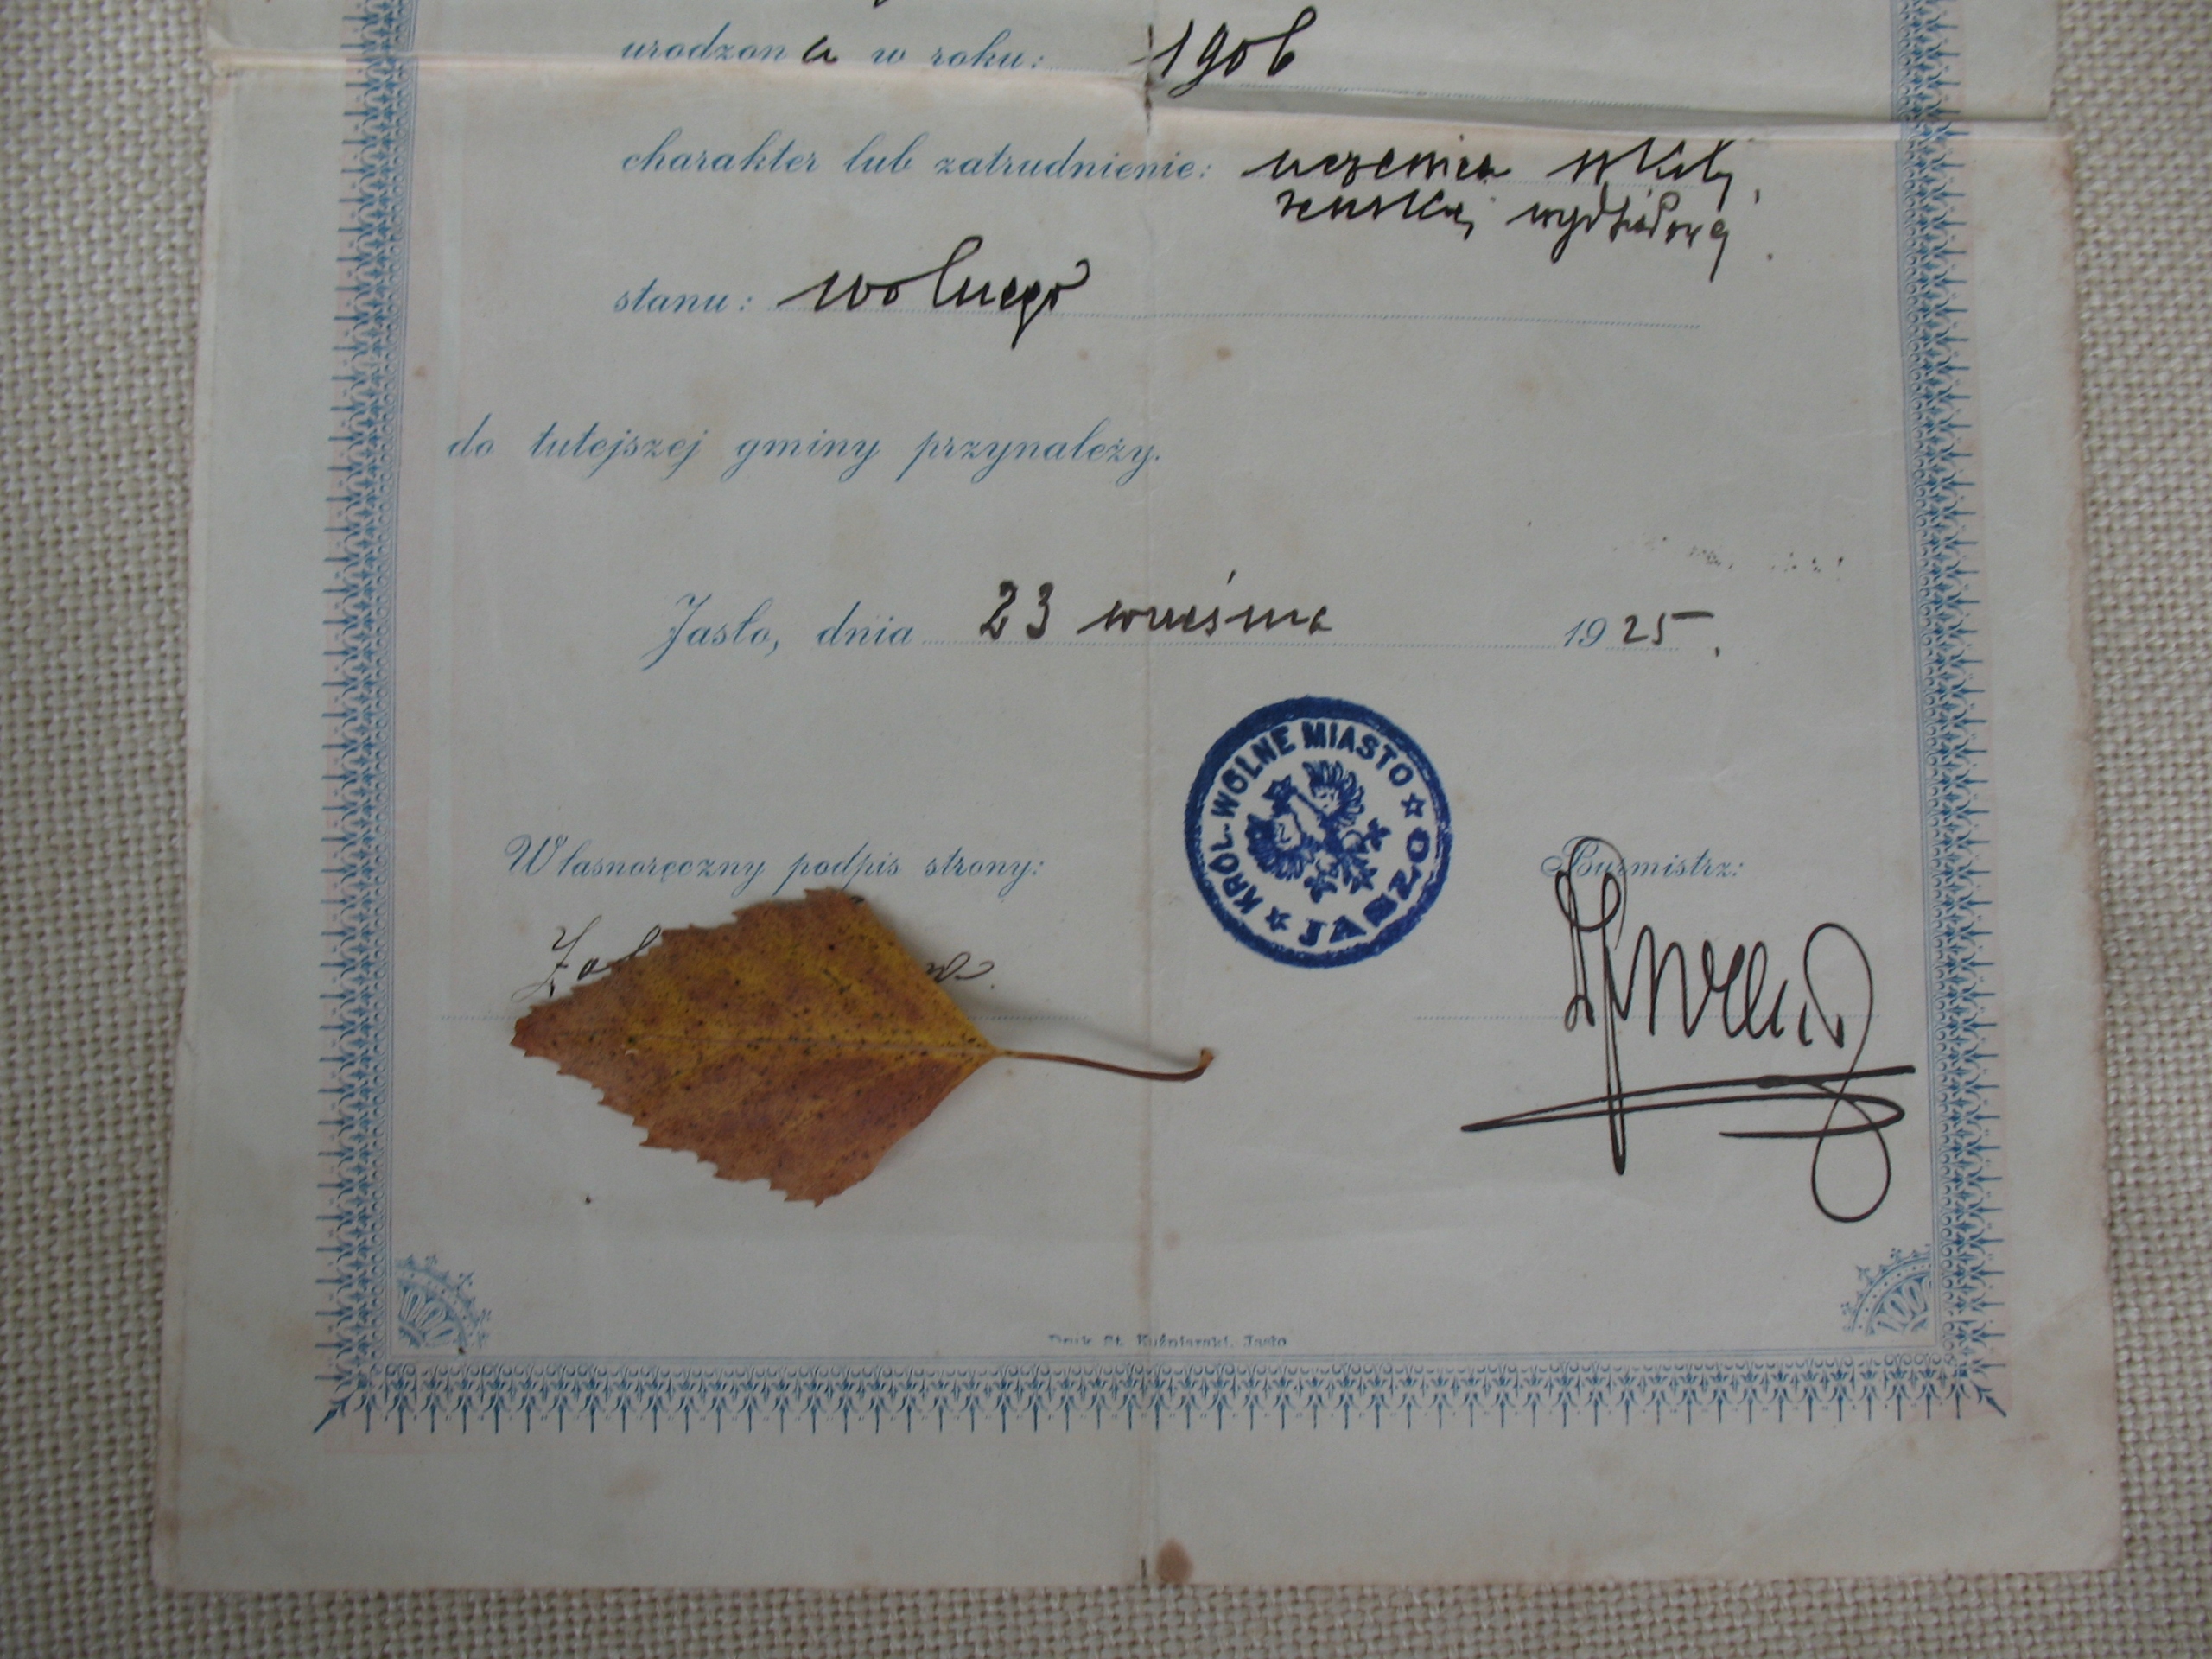 urodzona w roku: 1906
charakter lub zatrudnienie: uczenica szkoły
żeńskiej wydziałowej
stanu: wolnego
do tutejszej gminy przynależy.
Jasło, dnia 23 września 1925.
KRÓL-WOLNE MIASTO
JASŁO
Własnoręczny podpis strony:
Burmistrz:
Druk St. Kuźniarski, Jasło